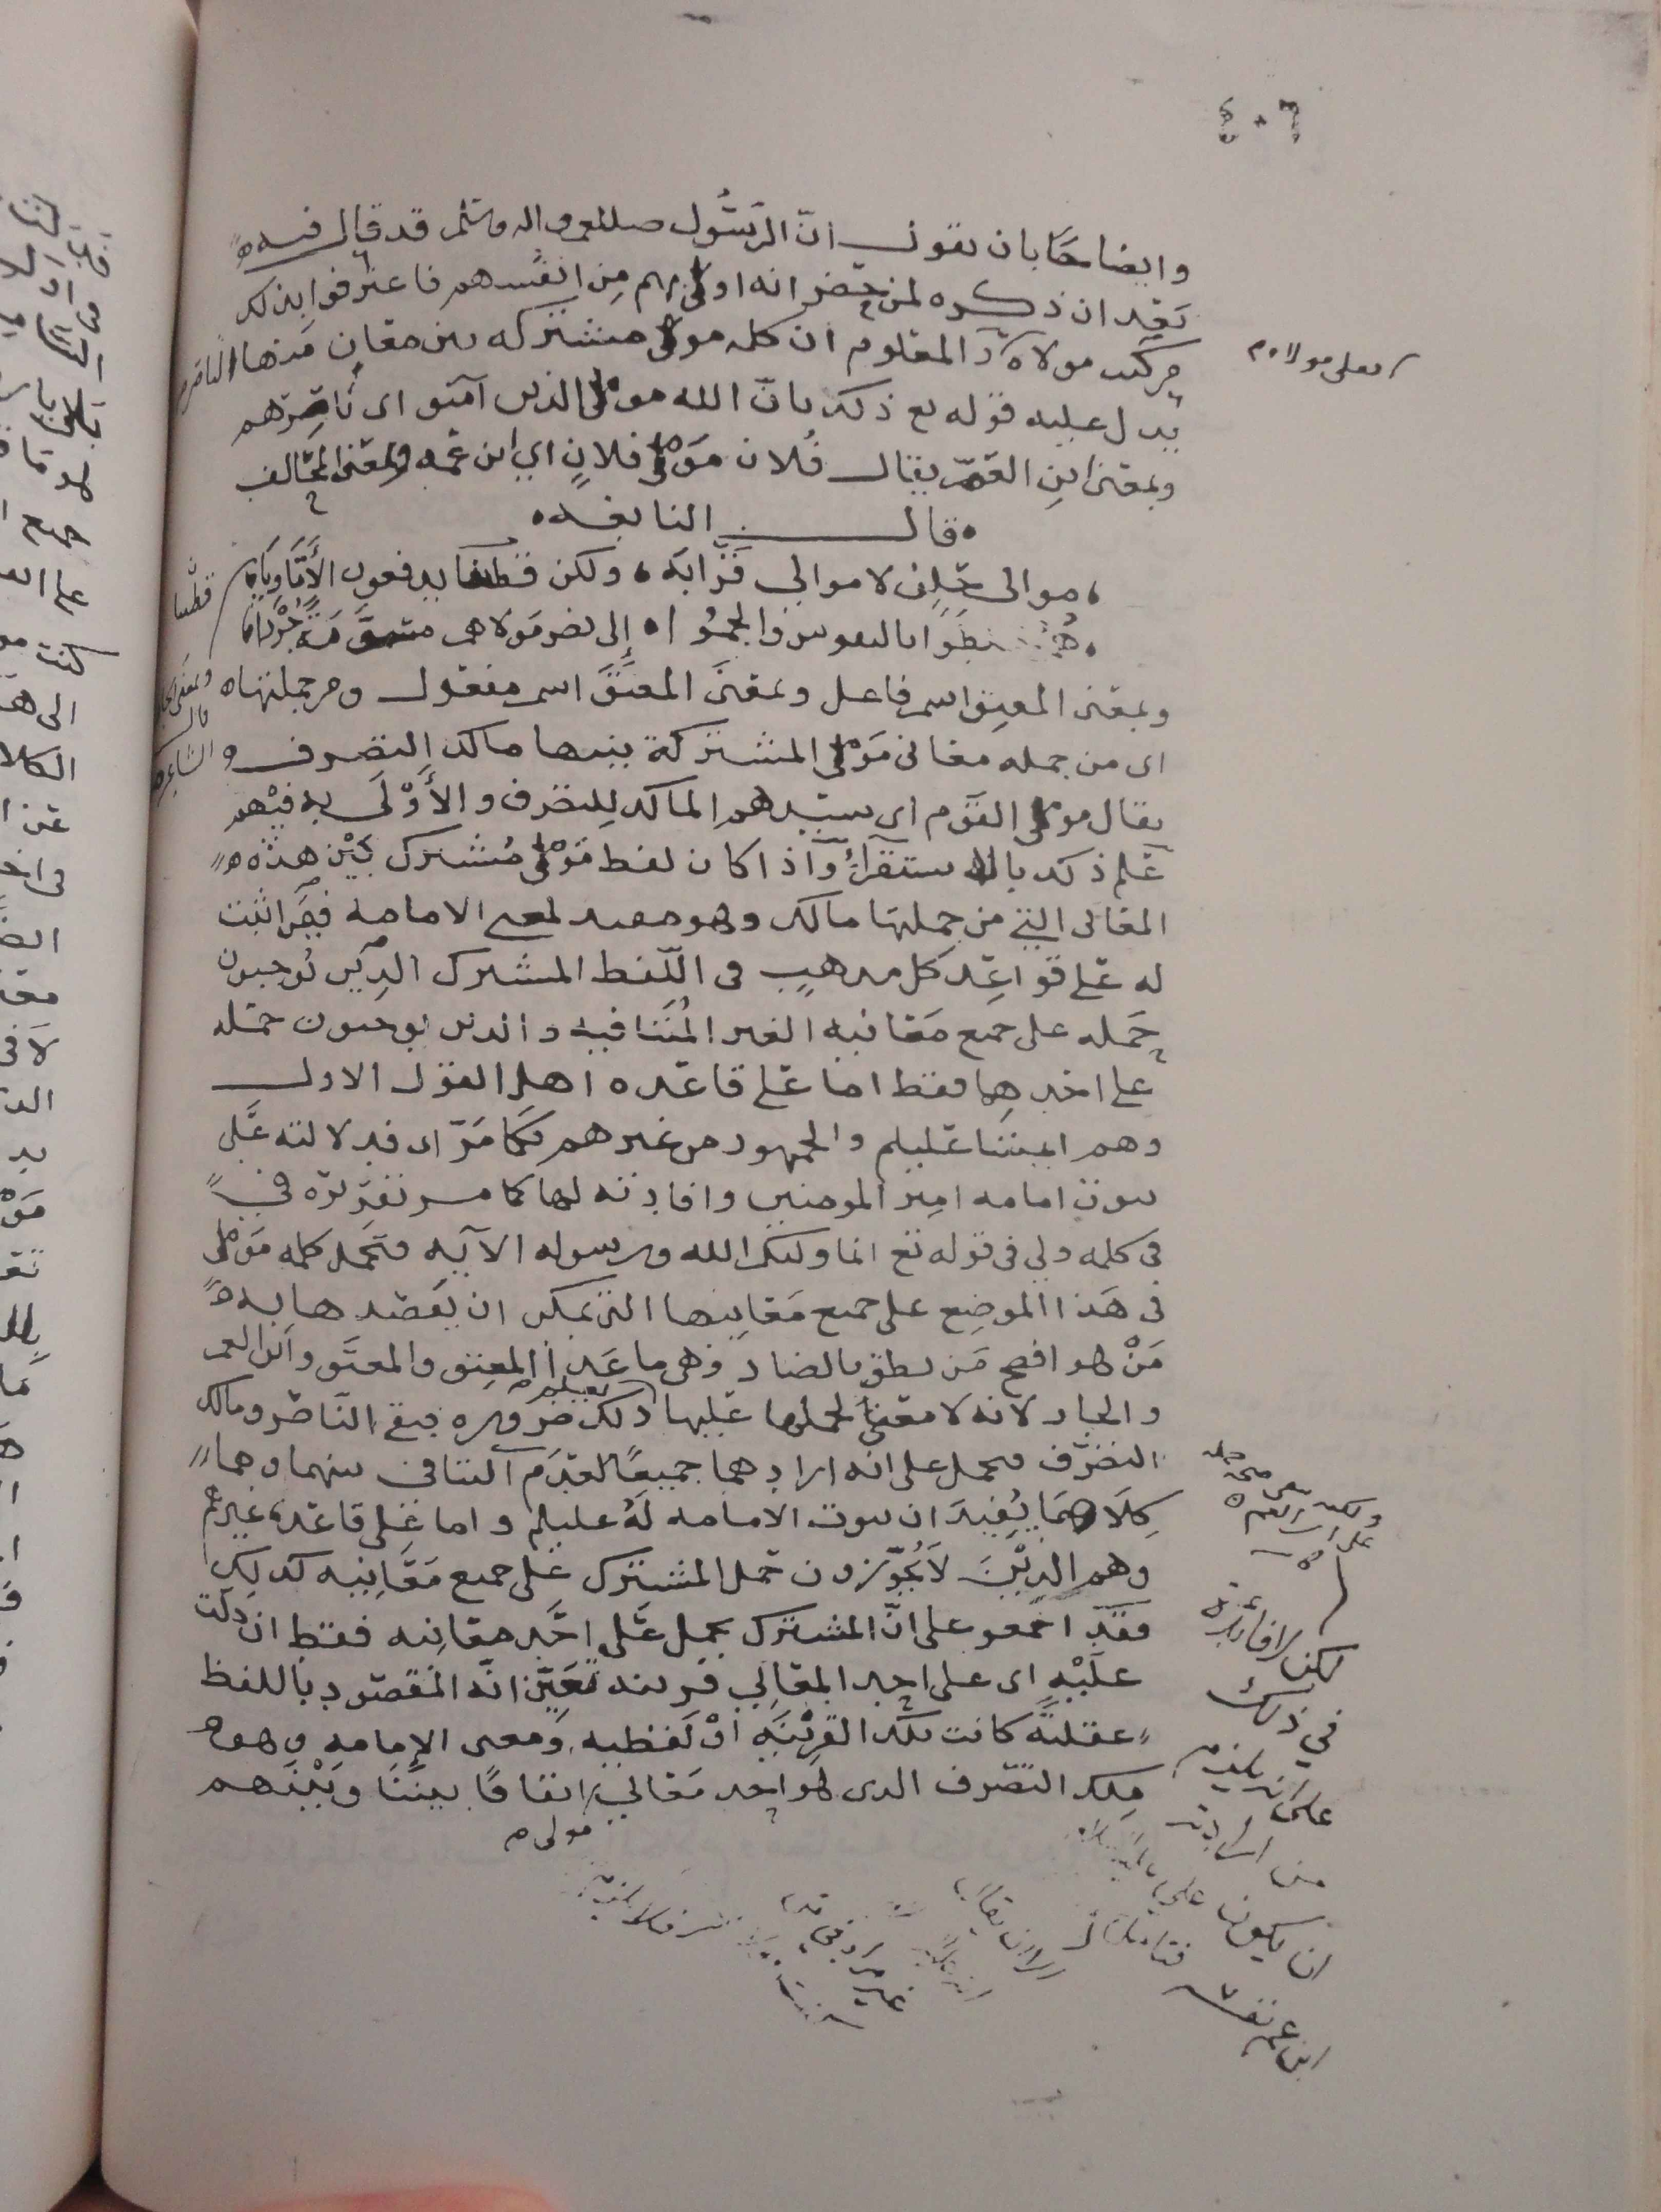 ٤٠٦
وايضاحها بان نقول ان الرسول صللم واله وسلم قد قال فيه
بعد ان ذكره لمن حضر انه اولى بهم من انفسهم فاعترفوا بذلك
من كنت مولاه والمعلوم ان كلمه مولى مشتركه بين معان منها الناصر
فعلي مولاه
يدل عليه قوله تع ذلك بان الله مولى الذين آمنو اى ناصرهم
وبمعنى ابن العم يقال فلان مولى فلان اي ابن عمه وبمعنى المحالف
قال النابغه
موالي حلف لا موالي قرابه ولكن قطينا يدفعون الأتاويا
قطينا
إلى نصر مولاهم
وبمعنى المعتق اسم فاعل وبمعنى المعتق اسم مفعول ومن جملتها
قال الشاعر
اى من جمله معانى مولى المشتركة بينها مالك التصرف
يقال مولى القوم اى سيدهم المالك للتصرف والأولى به فيهم
علم ذلك بالاستقراء واذا كان لفظ مولى مشترك بين هذه
المعانى التي من جملتها مالك وهو مفيد لمعنى الامامه فهي اثبت
له على قواعد كل مذهب فى اللفظ المشترك الذين يوجبون
حمله على جميع معانيه الغير المتنافيه والذين يوجبون حمله
على احدها فقط اما على قاعده اهل القول الاول
وهم ائمتنا عليلم والجمهور من غيرهم فكما مر اى فدلالته على
ثبوت امامه امير المومنين وافادته لها كما مر تقريره في
فى كلمه ولي فى قوله تع انما وليكم الله ورسوله الآيه فتحمل كلمه مولى
فى هذا الموضع على جميع معانيها التى يمكن ان يقصدها به
من هو افصح من نطق بالضاد وهى ما عدا المعتق والمعتق وابن العم
والجار لانه لا معنى لحملها عليها يعلم ذلك ضروره فبقى الناصر ومالك
التصرف فيحمل على انه ارادهما جميعا لعدم التنافى بينهما وهما
كلاهما يفيدان ثبوت الامامه له عليلم واما على قاعده غيرهم
وهم الذين لا يجوزون حمل المشترك على جميع معانيه كذلك
فقد اجمعو على ان المشترك يحمل على احد معانيه فقط ان دلت
عليه اى على احد المعاني قرينه تعين انه المقصود باللفظ
عقليه كانت تلك القرينه او لفظيه ومعنى الإمامه وهو
ملك التصرف الذى هو احد معاني اتفاقا بيننا وبينهم
مولى
لكن لا فائدة
في ذلك
على انه يلزم
من ارادته
ان يكون علي
ابن عم نفسه
فتامل
الا ان يقال
غير مراد في